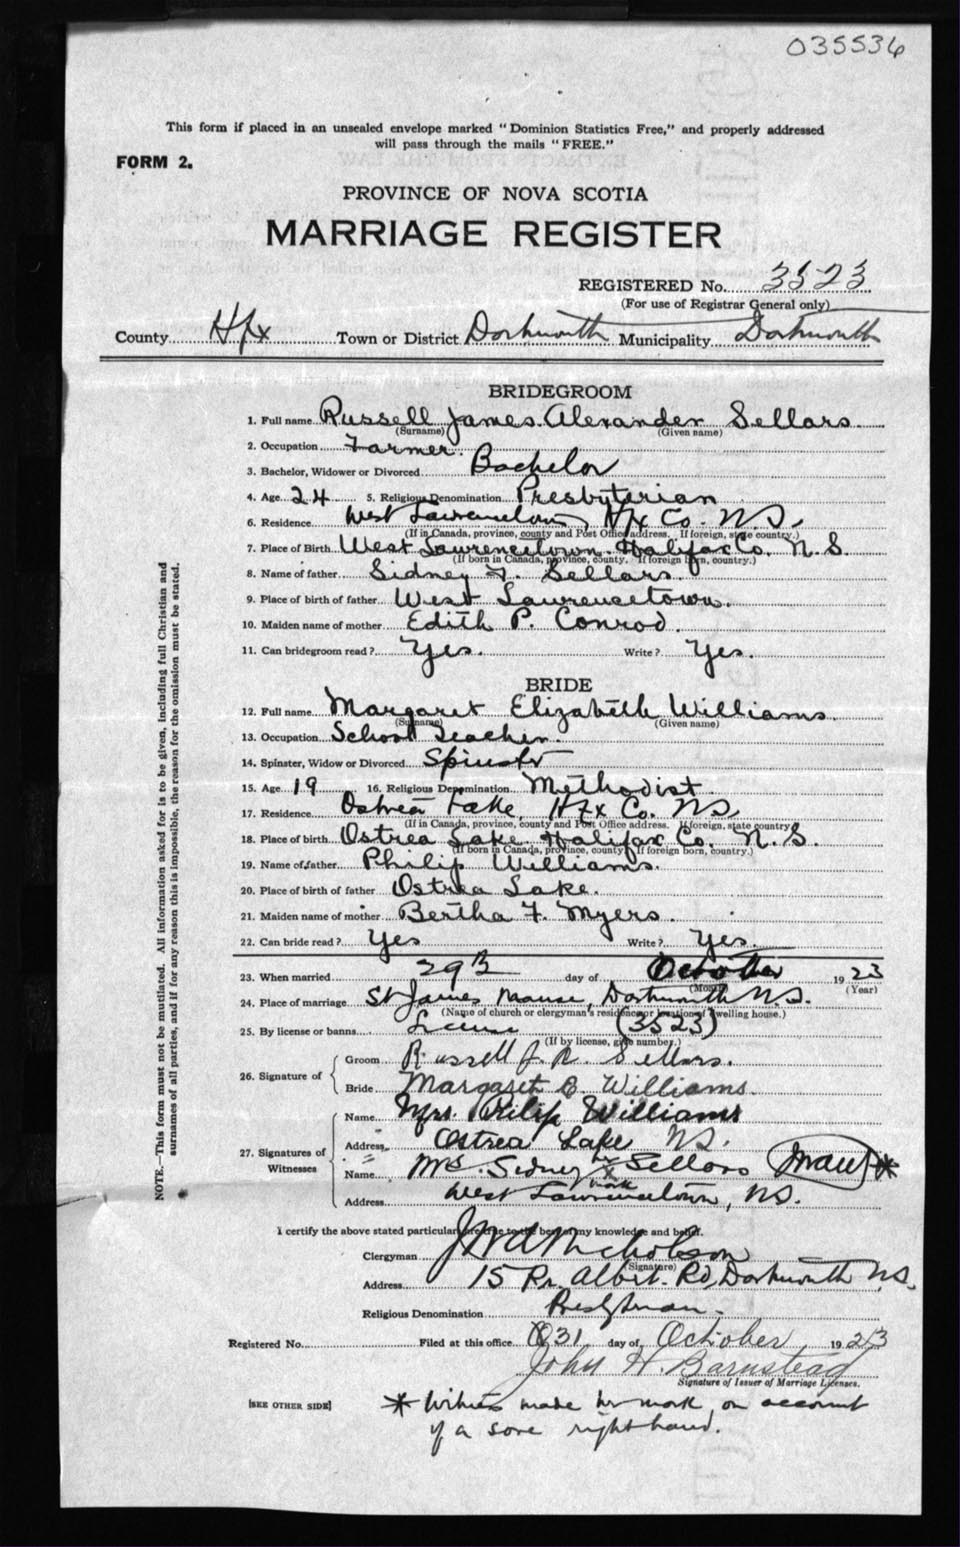 035536
This form if placed in an unsealed envelope marked "Dominion Statistics Free," and properly addressed
will pass through the mails "FREE."
FORM 2.
PROVINCE OF NOVA SCOTIA
MARRIAGE REGISTER
REGISTERED No. 3523
(For use of Registrar General only)
County Hfx Town or District Dartmouth Municipality Dartmouth
BRIDEGROOM
1. Full name Russell James Alexander Sellars
(Surname) (Given name)
2. Occupation Farmer.
3. Bachelor, Widower or Divorced Bachelor
4. Age 24 5. Religious Denomination Presbyterian
6. Residence West Lawrencetown, Hfx Co. N.S.
(If in Canada, province, county and Post Office address. If foreign, state country.)
7. Place of Birth West Lawrencetown. Halifax Co. N.S.
(If born in Canada, province, county. If foreign born, country.)
8. Name of father Sidney F. Sellars.
9. Place of birth of father West Lawrencetown.
10. Maiden name of mother Edith P. Conrod.
11. Can bridegroom read? Yes. Write? Yes.
BRIDE
12. Full name Margaret Elizabeth Williams.
(Surname) (Given name)
13. Occupation School Teacher.
14. Spinster, Widow or Divorced Spinster
15. Age 19 16. Religious Denomination Methodist
17. Residence Ostrea Lake, Hfx Co. NS
(If in Canada, province, county and Post Office address. If foreign, state country)
18. Place of birth Ostrea Lake Halifax Co. N.S.
(If born in Canada, province, county. If foreign born, country.)
19. Name of father Philip Williams.
20. Place of birth of father Ostrea Lake.
21. Maiden name of mother Bertha F. Myers.
22. Can bride read? Yes Write? Yes.
23. When married 29th day of October 1923
(Month) (Year)
24. Place of marriage St James Manse, Dartmouth N.S.
(Name of church or clergyman's residence or location of dwelling house.)
25. By license or banns License (3523)
(If by license, give number.)
26. Signature of
Groom Russell J. A. Sellars.
Bride Margaret E Williams.
27. Signatures of Witnesses
Name Mrs. Philip Williams
Address Ostrea Lake NS.
Name Mrs. Sidney her x mark Sellars *
Address West Lawrencetown, NS.
I certify the above stated particulars are true to the best of my knowledge and belief.
Clergyman Nicholson
(Signature)
Address 15 Pr. Albert Rd, Dartmouth NS.
Religious Denomination Presbyterian.
Registered No. Filed at this office 31 day of October 1923
John H. Barnstead
Signature of Issuer of Marriage Licenses.
[SEE OTHER SIDE]
* Witness made her mark on account
of a sore right hand.
NOTE.—This form must not be mutilated. All information asked for is to be given, including full Christian and
surnames of all parties, and if for any reason this is impossible, the reason for the omission must be stated.